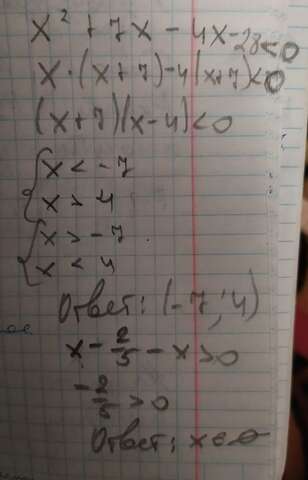 x² + 7x - 4x - 28 < 0
x · (x + 7) - 4(x + 7) < 0
(x + 7)(x - 4) < 0
{ x < -7
x > 4
{ x > -7
x < 4
Ответ: (-7; 4)
x - 2/5 - x > 0
-2/5 > 0
Ответ: x ∈ ∅